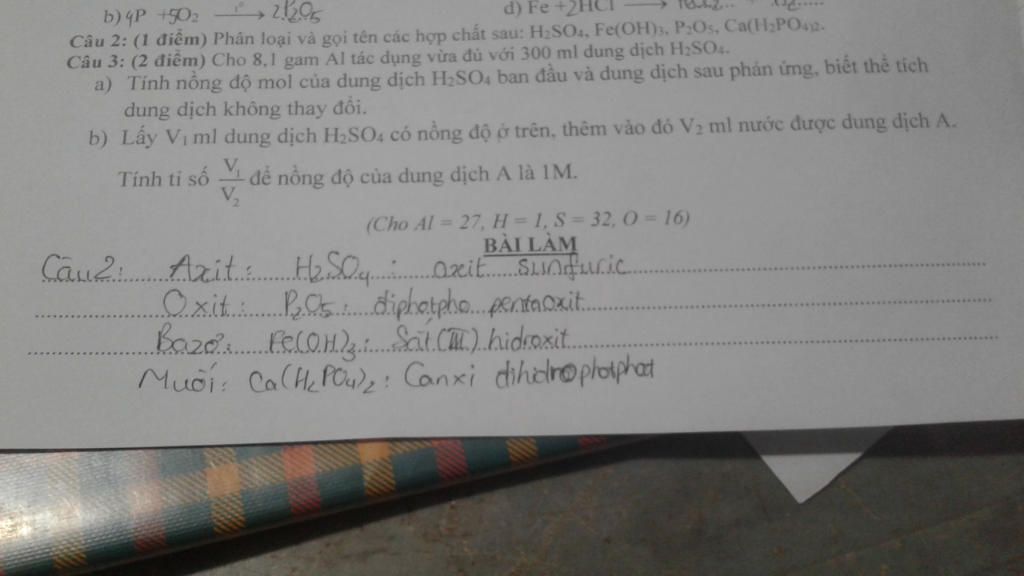 b) 4P + 5O₂ —t°→ 2P₂O₅ d) Fe + 2HCl →
Câu 2: (1 điểm) Phân loại và gọi tên các hợp chất sau: H₂SO₄, Fe(OH)₃, P₂O₅, Ca(H₂PO₄)₂.
Câu 3: (2 điểm) Cho 8,1 gam Al tác dụng vừa đủ với 300 ml dung dịch H₂SO₄.
a) Tính nồng độ mol của dung dịch H₂SO₄ ban đầu và dung dịch sau phản ứng, biết thể tích
dung dịch không thay đổi.
b) Lấy V₁ ml dung dịch H₂SO₄ có nồng độ ở trên, thêm vào đó V₂ ml nước được dung dịch A.
Tính tỉ số V₁/V₂ để nồng độ của dung dịch A là 1M.
(Cho Al = 27, H = 1, S = 32, O = 16)
BÀI LÀM
Câu 2: Axit: H₂SO₄: axit sunfuric
Oxit: P₂O₅: điphotpho pentaoxit
Bazơ: Fe(OH)₃: Sắt (III) hidroxit
Muối: Ca(H₂PO₄)₂: Canxi đihidrophotphat